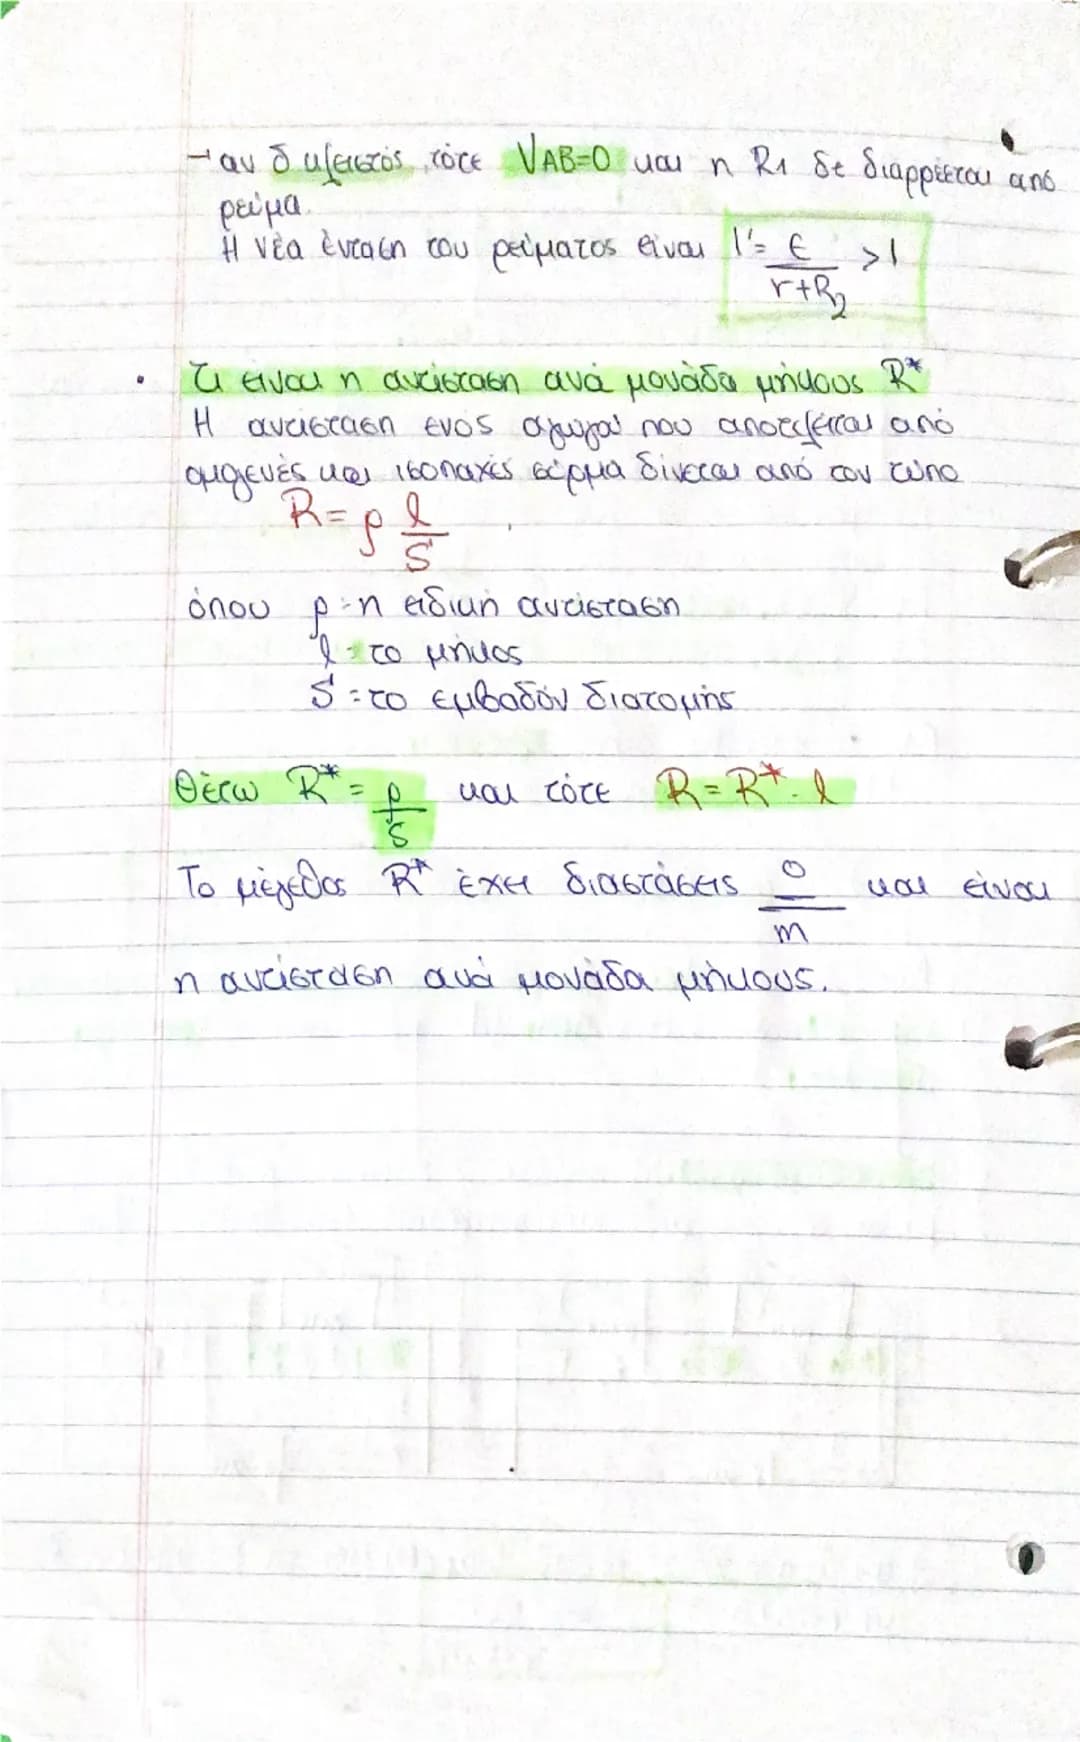 → αν δ κλειστός, τότε VAB=0 και η R1 δε διαρρέεται από
ρεύμα.
Η νέα ένταση του ρεύματος είναι I'= ε/(r+R2) >I
• Τι είναι η αντίσταση ανά μονάδα μήκους R*
Η αντίσταση ενός αγωγού που αποτελείται από
ομογενές και ισοπαχές σύρμα δίνεται από τον τύπο
R=ρ l/S
όπου ρ=η ειδική αντίσταση
l=το μήκος
S=το εμβαδόν διατομής
Θέτω R*= ρ/S και τότε R=R*·l
Το μέγεθος R* έχει διαστάσεις Ω/m και είναι
η αντίσταση ανά μονάδα μήκους.